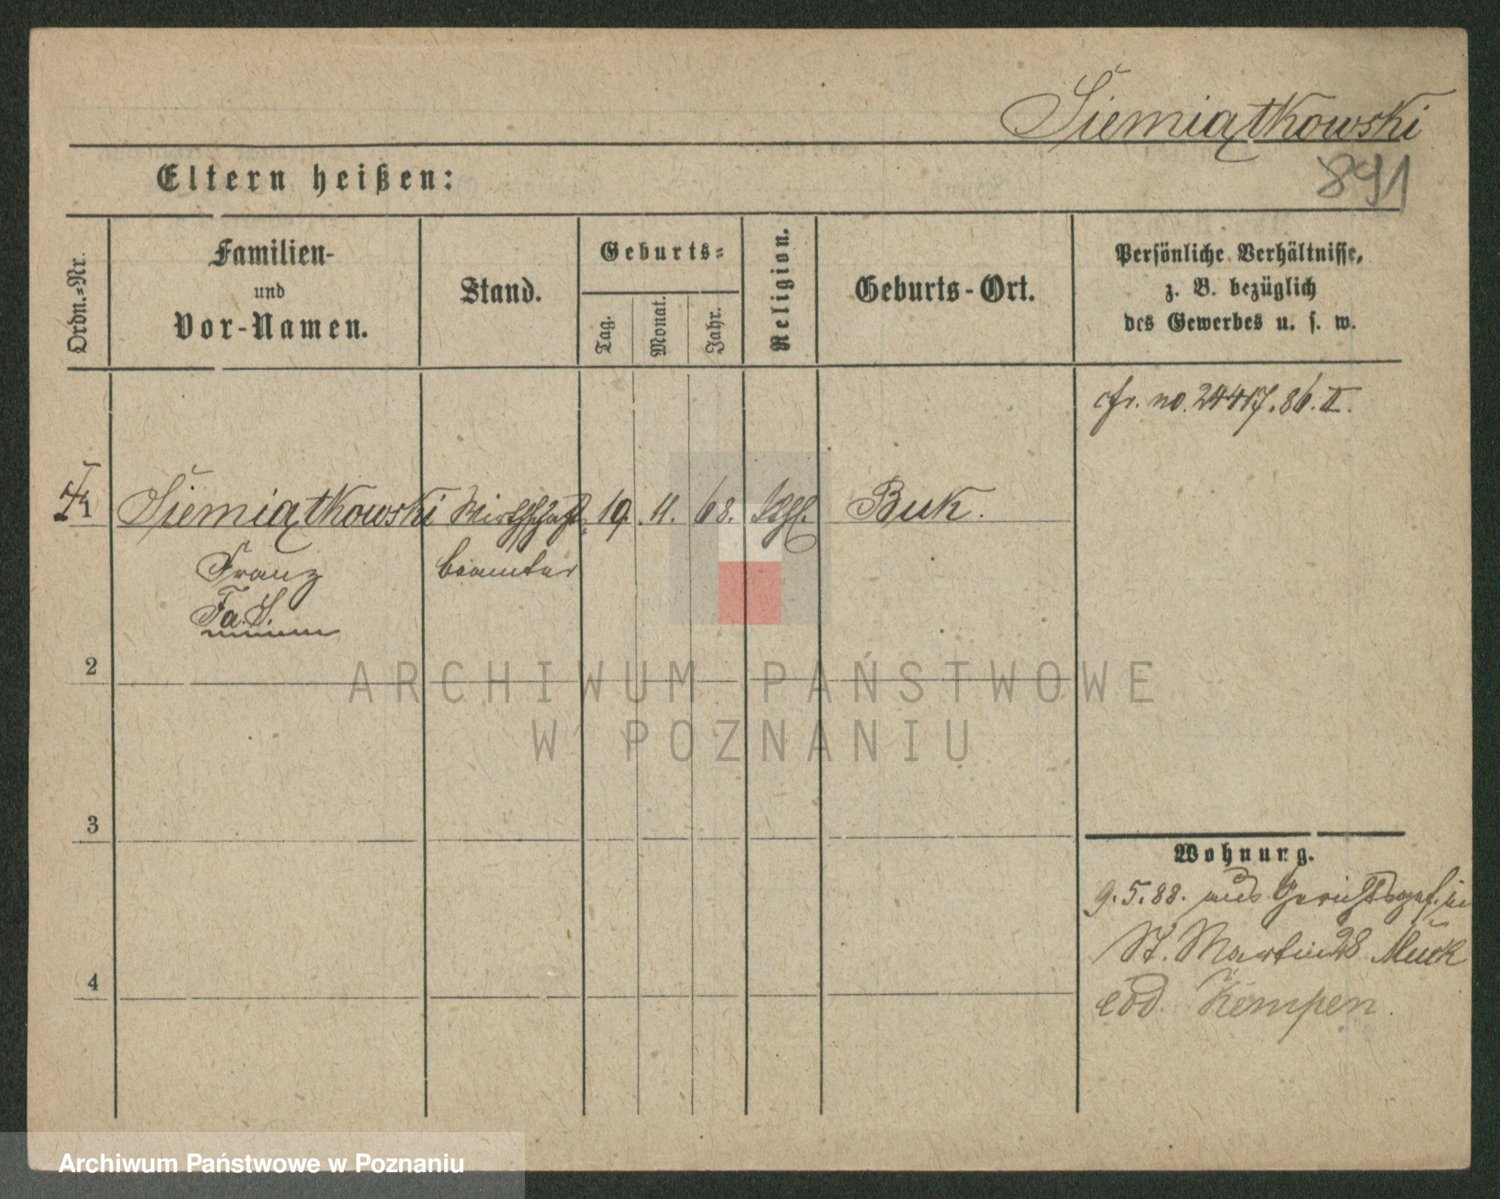 Siemiątkowski
891
Eltern heißen:
Ordn.=Nr.
Familien-
und
Vor-Namen.
Stand.
Geburts=
Tag.
Monat.
Jahr.
Religion.
Geburts-Ort.
Persönliche Verhältnisse,
z. B. bezüglich
des Gewerbes u. s. w.
cfr. no. 24417.86.II.
1 Siemiątkowski Wirthschafts 19. 11. 68. kath. Buk.
Franz beamter
Fa. S.
2
ARCHIWUM PAŃSTWOWE
W POZNANIU
3
4
Wohnung.
9.5.88. aus Gerichtsgef. in
St. Martin 28 Muck
eod. Kempen.
Archiwum Państwowe w Poznaniu